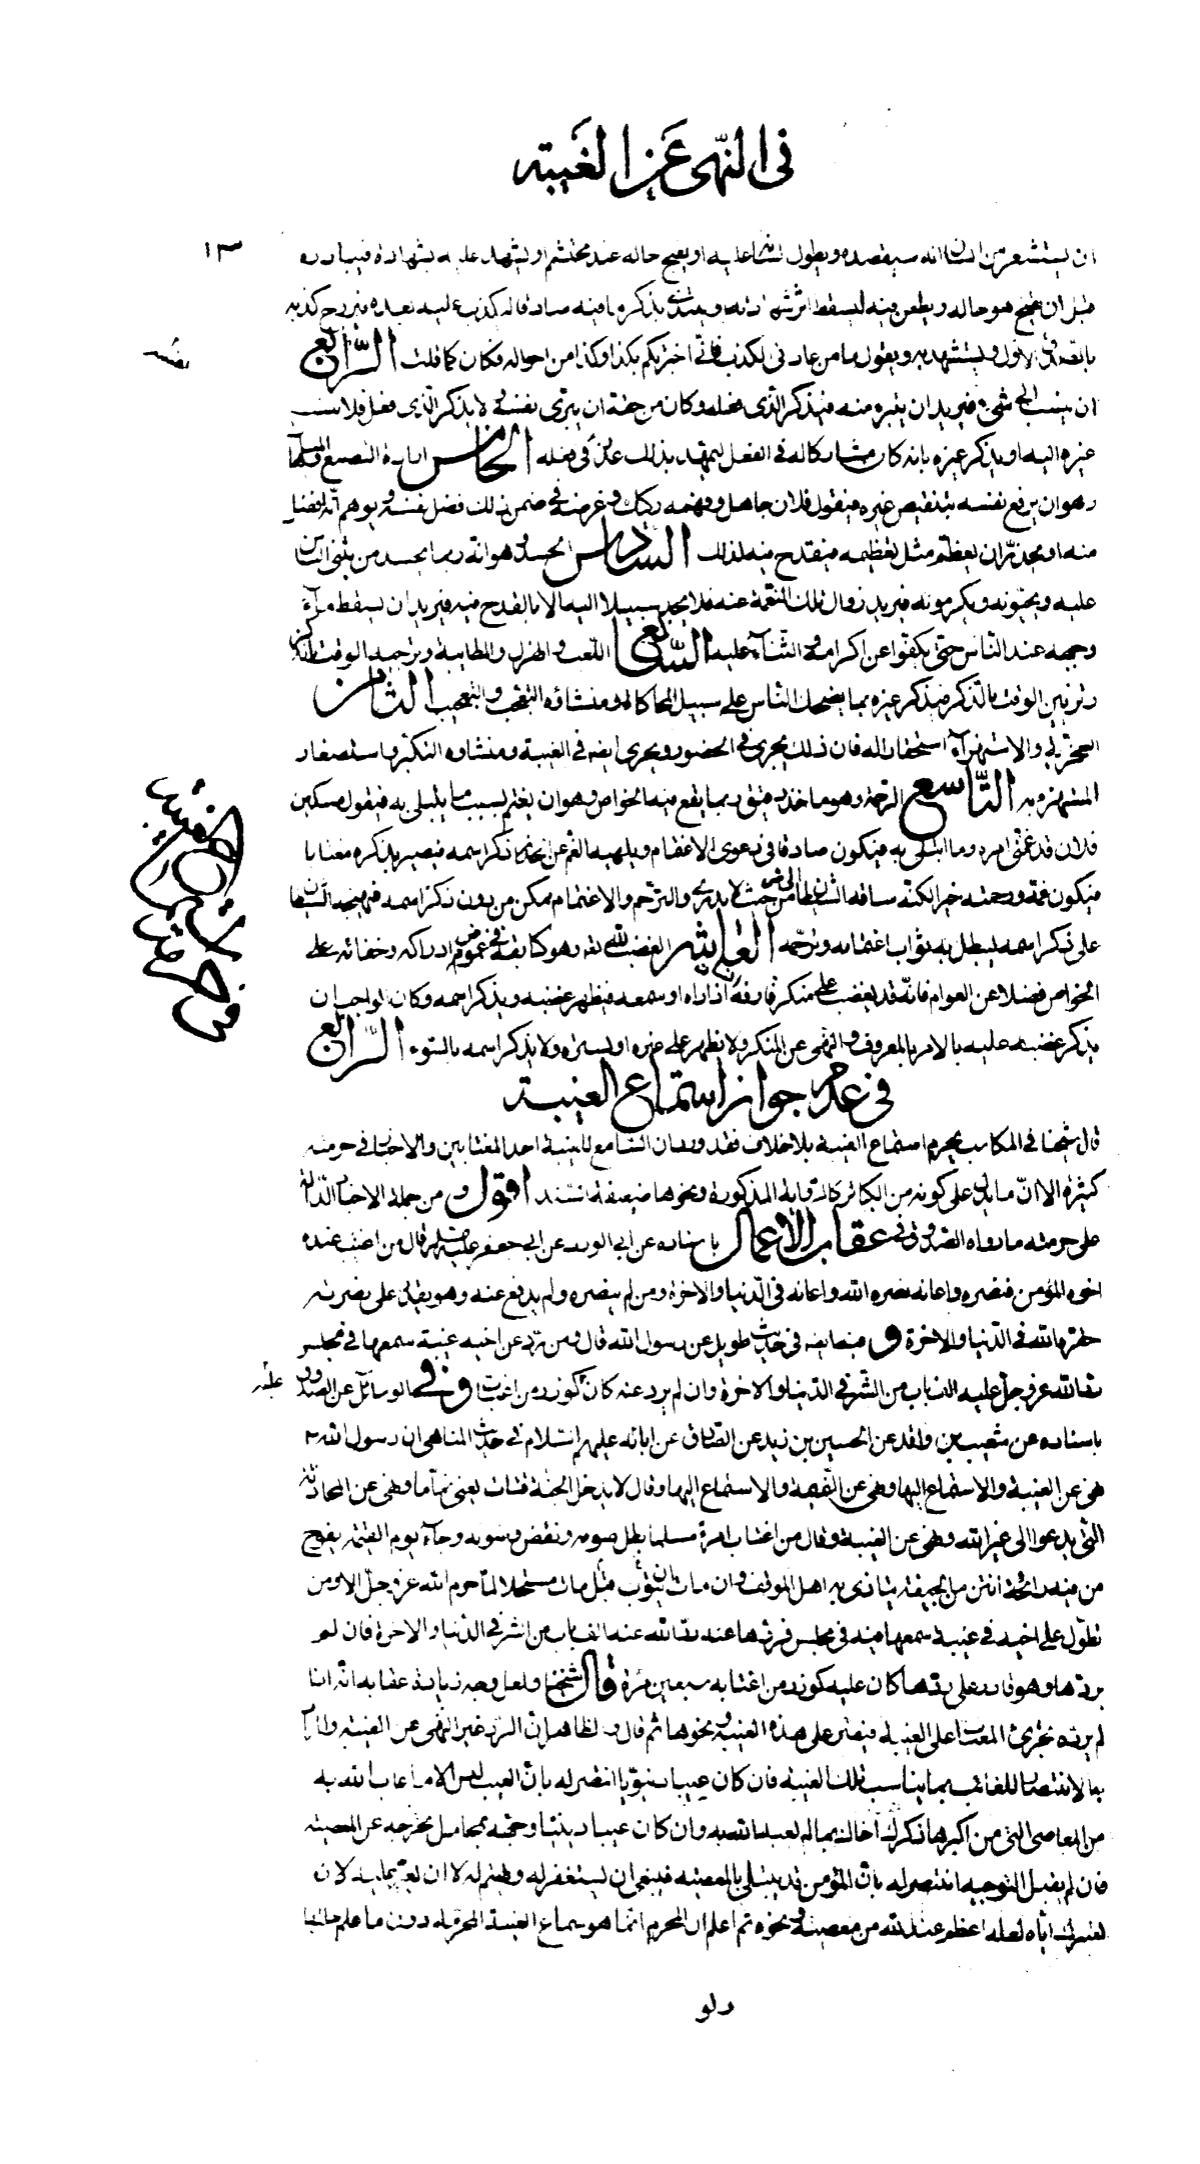 فی النّهی عَن الغَیبته
١٣
ان یستشعر من انسان انه سیقصده ویطول لسانه علیه او یقبح حاله عند محتشم او یشهد علیه بشهادة فیبادره
قبل ان یقبح هو حاله ویطعن فیه لیسقط اثر شهادته او یبتدی بذکر ما فیه صادقا لیکذب علیه بعده فیروج کذبه
بالصدق الاول ویستشهد به ویقول ما من عادتی الکذب فانّی اخبرتکم بکذا وکذا من احواله فکان کما قلت الرّابع
ان ینسب الی شیء فیرید ان یتبرء منه فیذکر الذی فعله وکان من حقه ان یبریٔ نفسه ولا یذکر الّذی فعل فلا ینسب
غیره الیه او یذکر غیره بانه کان مشارکا له فی الفعل لیمهد بذلک عذر نفسه فی فعله الخامس ارادة التصنع والمباهاة
وهو ان یرفع نفسه بتنقیص غیره فیقول فلان جاهل وفهمه رکیک وغرضه فی ضمن ذلک فضل نفسه ویوهم انّه افضل
منه او یحذر ان یعظّم مثل تعظیمه فیقدح فیه لذلک السادس الحسد وهو انه ربما یحسد من یثنی الناس
علیه ویحبّونه ویکرمونه فیرید زوال تلک النّعمة عنه فلا یجد سبیلا الیه الا بالقدح فیه فیرید ان یسقط مآء
وجهه عند النّاس حتی یکفّوا عن اکرامه والثّنآء علیه السّابع اللّعب والهزل والمطایبة وتزجیة الوقت بالذکر
وتزیین الوقت بالذّکر فیذکر غیره بما یضحک النّاس علی سبیل المحاکاة ومنشاؤه التعجّب والتعجیب الثّامن
السّخریّة والاستهزآء استحقارا له فانّ ذلک یجری فی الحضور ویجری ایضا فی الغیبة ومنشاؤه التکبّر واستصغار
المستهزء به التّاسع الرّحمة وهو ماخذ دقیق ربما یقع فیه الخواص وهو ان یغتمّ بسبب ما یبتلی به فیقول مسکین
فلان قد غمّنی امره وما ابتلی به فیکون صادقا فی دعوی الاغتمام ویلهیه الغمّ عن الحذر عن ذکر اسمه فیصیر بذکره مغتابا
فیکون غمّه ورحمته خیرا لکنّه ساقه الشّیطان الی شرّ من حیث لا یدری والترحّم والاغتمام ممکن من دون ذکر اسمه فیهیجه الشّیطان
علی ذکر اسمه لیبطل به ثواب اغتمامه وترحّمه العاشر الغضب للّٰه تعالی وهو کسابقه فی غموض ادراکه وخفائه علی
الخواص فضلا عن العوام فانّه قد یغضب علی منکر قارفه اذا راه او سمعه فیظهر غضبه ویذکر اسمه وکان الواجب ان
یذکر غضبه علیه بالامر بالمعروف والنّهی عن المنکر ولا یظهر علی غیره او یستره ولا یذکر اسمه بالسّوء الرّابع
فی عدم جواز استماع الغیبة
قال شیخنا فی المکاسب یحرم استماع الغیبة بلا خلاف فقد ورد ان السّامع للغیبة احد المغتابین والاخبار فی حرمته
کثیرة الا انّ ما یدلّ علی کونه من الکبائر کالرّوایة المذکورة ونحوها ضعیفة السّند اقول ومن جملة الاخبار الدّالة
علی حرمته ما رواه الصدوق فی عقاب الأعمال باسناده عن ابی الورد عن ابی جعفر علیه السّلم قال من اغتیب عنده
اخوه المؤمن فنصره واعانه نصره اللّه واعانه فی الدّنیا والاخرة ومن لم ینصره ولم یدفع عنه وهو یقدر علی نصرته
حقّره اللّه فی الدّنیا والاخرة و فیه ایضا فی حدیث طویل عن رسول اللّه قال ومن ردّ عن اخیه غیبة سمعها فی مجلس
ردّ اللّه عزوجلّ علیه الف باب من الشّر فی الدّنیا والاخرة وان لم یردّ عنه کان کوزر من اغتاب و فی الوسائل عن الصدوق
باسناده عن شعیب بن واقد عن الحسین بن زید عن الصّادق عن ابائه علیهم السّلام فی حدیث المناهی ان رسول اللّه ص
نهی عن الغیبة والاستماع الیها ونهی عن النّمیمة والاستماع الیها وقال لا یدخل الجنّة قتّات یعنی نمّاما ونهی عن المحادثة
الّتی یدعوا الی غیر اللّه ونهی عن الغیبة وقال من اغتاب امرء مسلما بطل صومه ونقض وضوئه وجآء یوم القیمة یفوح
من فیه رائحة انتن من الجیفة یتاذی به اهل الموقف وان مات قبل ان یتوب مات مستحلا لما حرم اللّه عزوجلّ الا ومن
تطوّل علی اخیه فی غیبة سمعها فیه فی مجلس فردّها عنه ردّ اللّه عنه الف باب من الشر فی الدّنیا والاخرة فان لم
یردّها وهو قادر علی ردّها کان علیه کوزر من اغتابه سبعین مرّة قال شیخنا ولعل وجه زیادة عقابه انّه اذا
لم یردّه تجرّیٔ المغتاب علی الغیبة فیصرّ علی هذه الغیبة ونحوها ثم قال والظاهر انّ الردّ غیر النّهی عن الغیبة والمراد
به الانتصار للغائب بما یناسب تلک الغیبة فان کان عیبا دنیویّا انتصر له بانّ العیب لیس الا ما عاب اللّه به
من المعاصی التی من اکبرها ذکرک اخاک بما لم یعبه اللّه به وان کان عیبا دینیّا وجّهه بمحامل تخرجه عن المعصیة
فان لم یقبل التوجیه انتصر له بانّ المؤمن قد یبتلی بالمعصیة فینبغی ان یستغفر له ویهتم له لا ان یعیّر علیه لان
تعییرک ایّاه لعله اعظم عند اللّه من معصیته ونحوه ثم اعلم انّ المحرم انّما هو سماع الغیبة المحرّمة دون ما علم حلّیتها
ولو